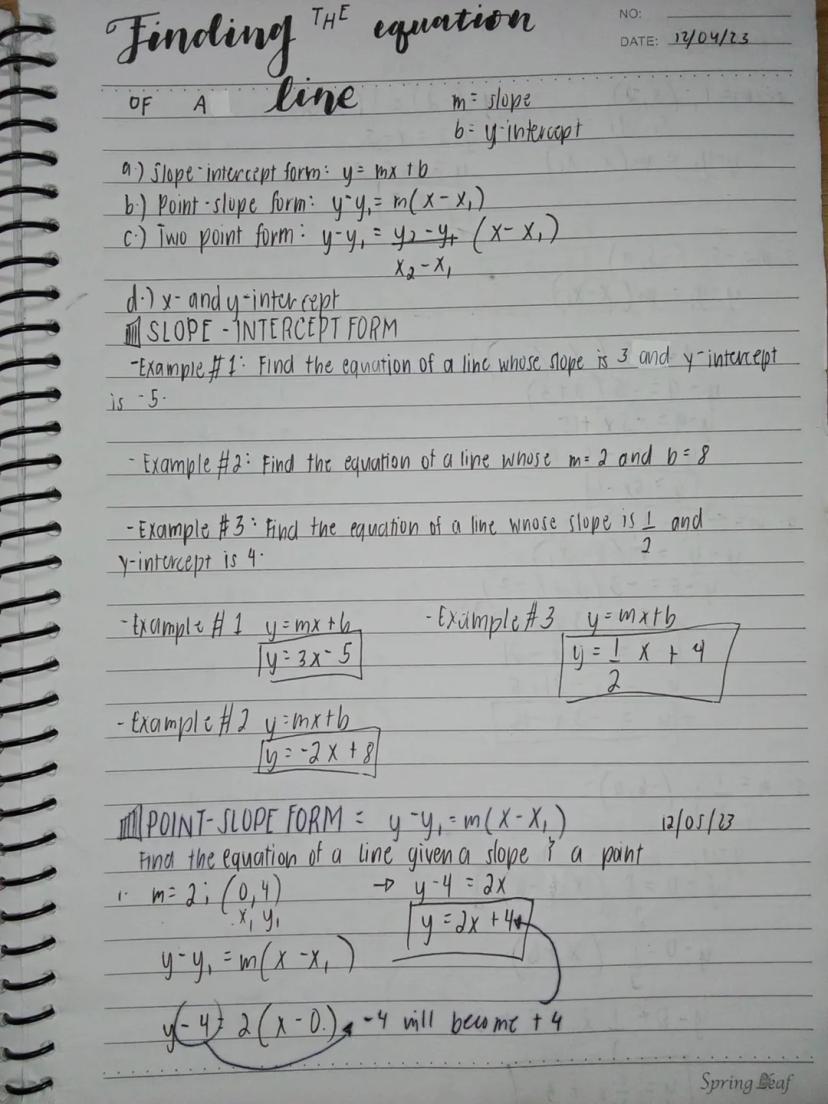 Finding THE equation
NO:
DATE: 12/04/23
OF A line
m = slope
b = y-intercept
a.) Slope-intercept form: y = mx + b
b.) Point-slope form: y-y₁ = m(x-x₁)
c.) Two point form: y-y₁ = y₂-y₁ (x-x₁)
x₂-x₁
d.) x- and y-intercept
SLOPE-INTERCEPT FORM
-Example #1: Find the equation of a line whose slope is 3 and y-intercept
is -5.
-Example #2: Find the equation of a line whose m= 2 and b= 8
-Example #3: Find the equation of a line whose slope is 1/2 and
y-intercept is 4.
-Example #1 y=mx+b
y=3x-5
-Example #3 y=mx+b
y = 1/2 x + 4
-Example #2 y=mx+b
y=-2x+8
POINT-SLOPE FORM = y-y₁=m(x-x₁) 12/05/23
Find the equation of a line given a slope & a point
1. m=2; (0,4)
x₁ y₁
→ y-4=2x
y=2x+4
y-y₁=m(x-x₁)
y-4=2(x-0) -4 will become +4
Spring Leaf